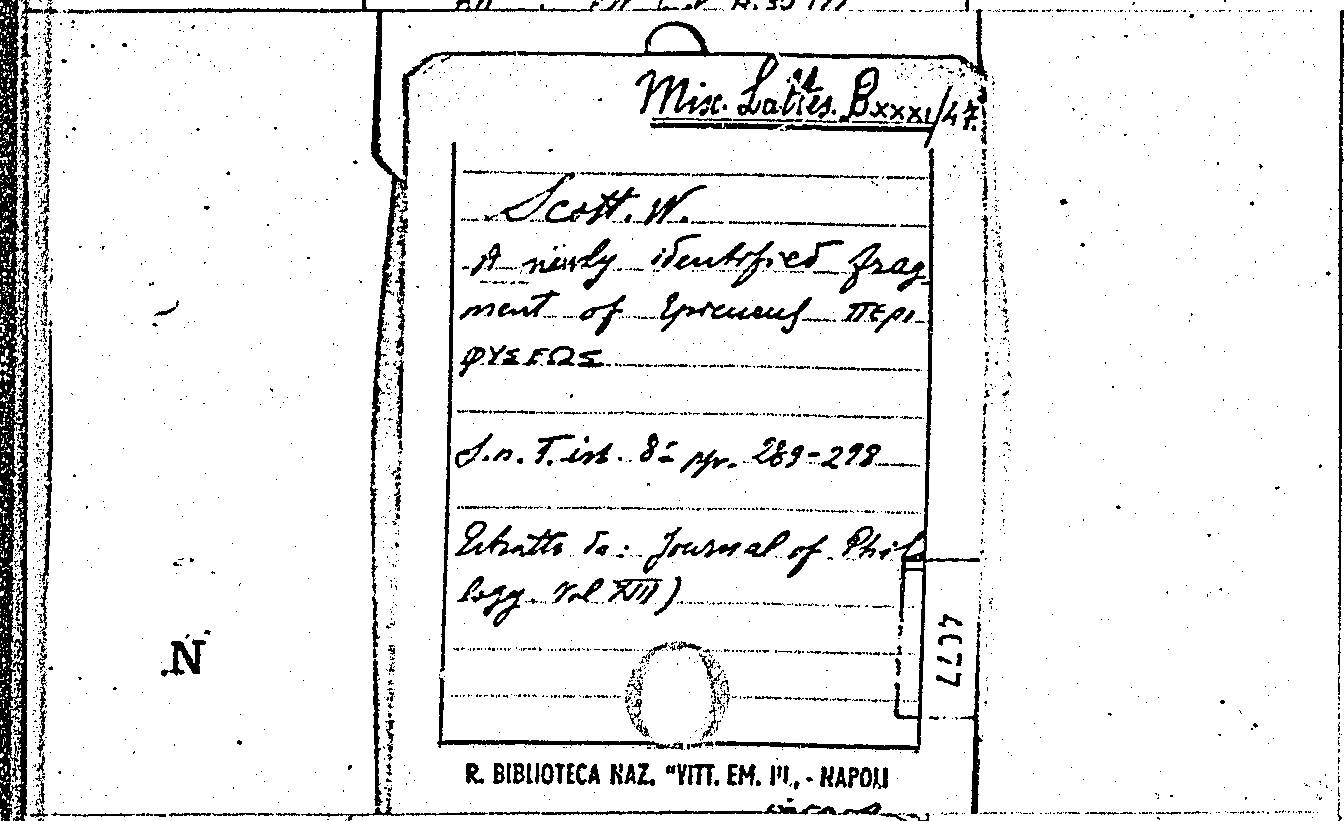 Misc. Latres. Bxxxi/47.
Scott. W.
A newly identified frag
ment of Epicurus ΠΕΡΙ
ΦΥΣΕΩΣ
S.n. T. ist. 8° pp. 289-298
Estratto da: Journal of Philo
logy. Vol XIII)
N
R. BIBLIOTECA NAZ. "VITT. EM. III„ - NAPOLI